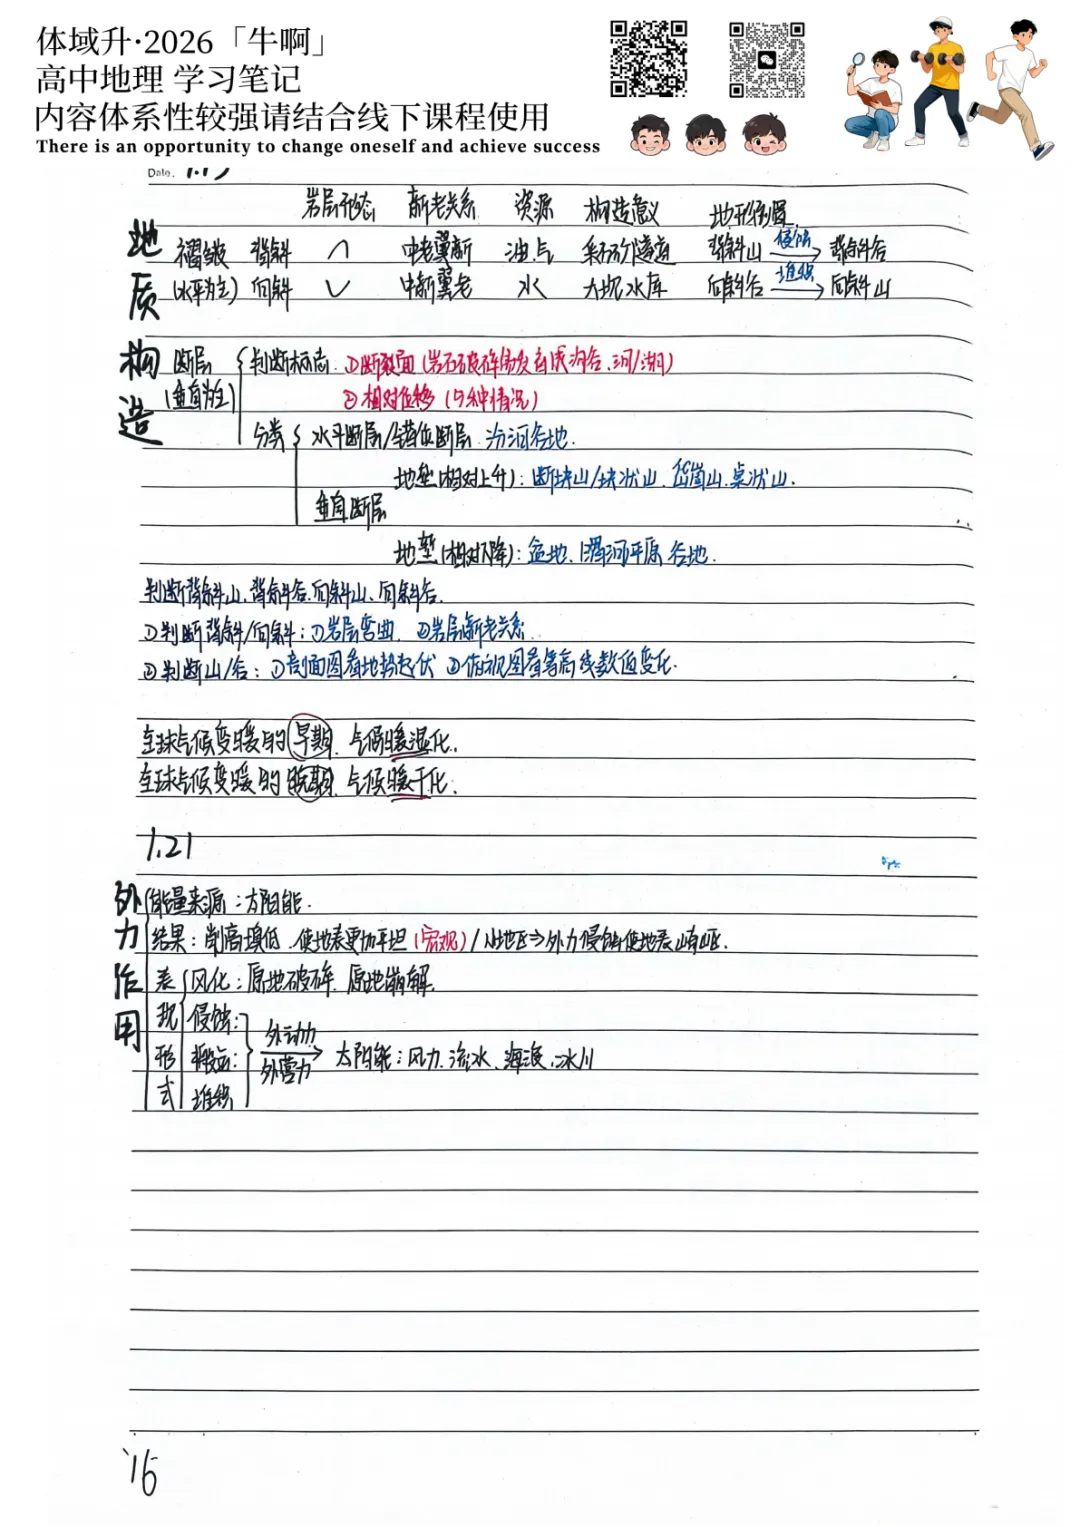 体域升·2026「牛啊」
高中地理 学习笔记
内容体系性较强请结合线下课程使用
There is an opportunity to change oneself and achieve success
Date.
岩层形态 新老关系 资源 构造意义 地形倒置
地质构造
褶皱 背斜 ︿ 中老翼新 油气 采石的隧道 背斜山 侵蚀→ 背斜谷
(水平为主) 向斜 ﹀ 中新翼老 水 大坝水库 向斜谷 堆积→ 向斜山
断层 { 判断标志: ①断裂面 (岩石破碎易发育成沟谷、河/湖)
(垂直为主) ②相对位移 (5种情况)
分类 { 水平断层/错位断层 汾河谷地.
地垒(相对上升): 断块山/块状山、岱崮山、桌状山.
垂直断层
地堑(相对下降): 盆地、渭河平原 谷地.
判断背斜山、背斜谷、向斜山、向斜谷.
①判断背斜/向斜: ①岩层弯曲. ②岩层新老关系.
②判断山/谷: ①剖面图看地势起伏 ②俯视图看等高线数值变化.
全球气候变暖的早期. 气候暖湿化.
全球气候变暖的晚期. 气候暖干化.
1.21
外力作用
能量来源: 太阳能.
结果: 削高填低. 使地表更加平坦 (宏观) / 小地区⇒外力侵蚀使地表崎岖.
表现形式
风化: 原地破碎. 原地崩解.
侵蚀:
搬运: 外动力 外营力 → 太阳能: 风力、流水、海浪、冰川
堆积
16